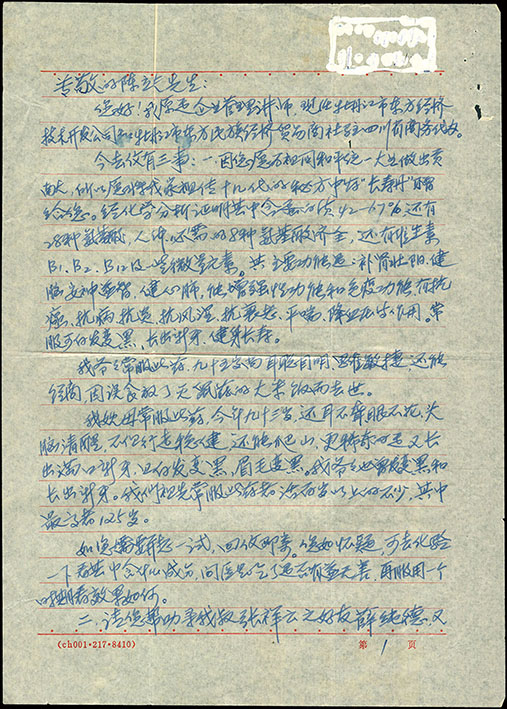 尊敬的陈立夫先生：
您好！我原是企业管理讲师，现任牡丹江市东方经济
技术开发公司和牡丹江市东方民族经济贸易商社驻四川省商务代办。
今去信有三事：一.因您愿为祖国和平统一大业做出贡
献，所以愿将我家祖传十几代的秘方中的“长寿丹”赠
给您。经化学分析证明其中含蛋白质42-67%，还有
28种氨基酸，人体必需的8种氨基酸齐全，还有维生素
B1、B2、B12及一些微量元素。其主要功能是：补肾壮阳、健
脑安神益智，健心肺，能增强性功能和免疫功能，有抗
癌、抗病、抗炎、抗风湿、抗衰老、平喘、降血压等作用。常
服可使发变黑，长出新牙，健身长寿。
我爷爷常服此药，九十五岁尚耳聪目明，思维敏捷，还能
经商，因误食放了灭鼠药的大米饭而去世。
我奶母常服此药，今年九十三岁，还耳不聋眼不花，头
脑清醒，不但行走稳健，还能爬山，更稀奇的是又长
出满口新牙，且白发变黑，眉毛变黑。我爷爷也曾发变黑和
长出新牙。我们祖先常服此药者，活百岁以上的不少，其中
最高者125岁。
如您需要想一试，回信即寄。您如怀疑，可去化验
一下看其中含什么成分，问医生吃了是否有益无害，再服用一个
时期看效果如何。
二.请您帮助寻我叔张祥云之好友薛纯德，又
(ch001·217·8410)
第1页